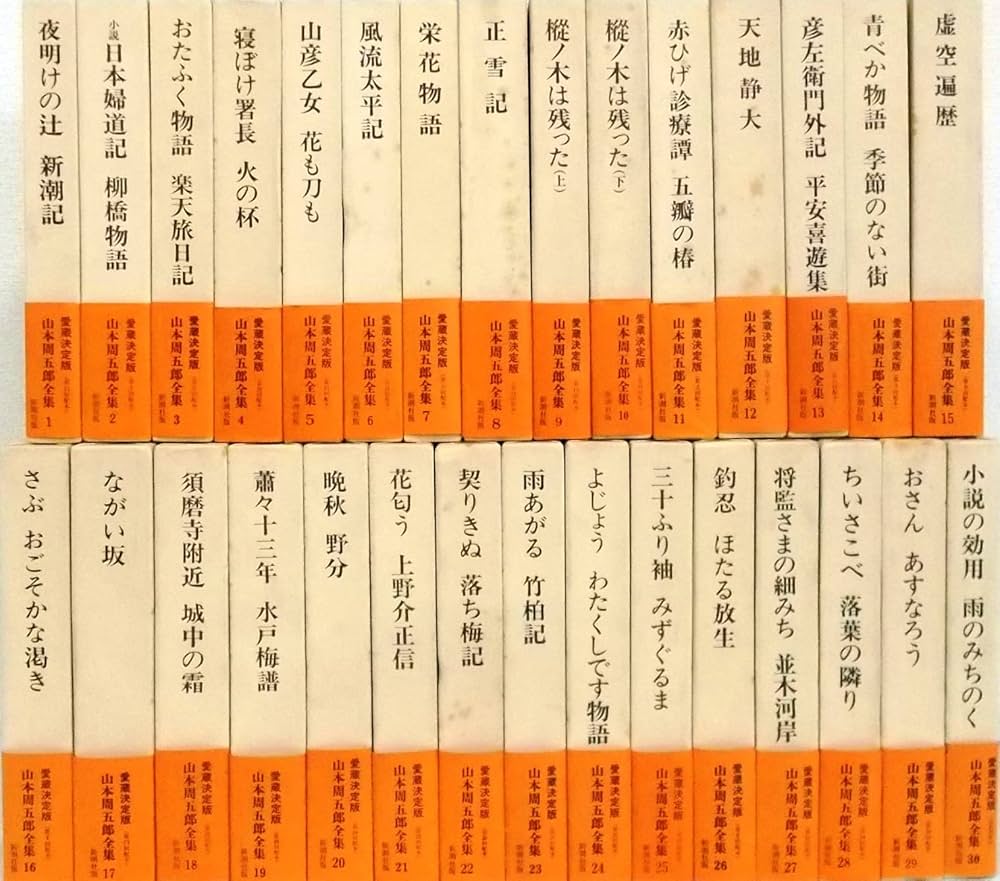 夜明けの辻 新潮記
愛蔵決定版
山本周五郎全集
新潮社版
1
小説 日本婦道記 柳橋物語
愛蔵決定版
山本周五郎全集
新潮社版
2
おたふく物語 楽天旅日記
愛蔵決定版
山本周五郎全集
新潮社版
3
寝ぼけ署長 火の杯
愛蔵決定版
山本周五郎全集
新潮社版
4
山彦乙女 花も刀も
愛蔵決定版
山本周五郎全集
新潮社版
5
風流太平記
愛蔵決定版
山本周五郎全集
新潮社版
6
栄花物語
愛蔵決定版
山本周五郎全集
新潮社版
7
正雪記
愛蔵決定版
山本周五郎全集
新潮社版
8
樅ノ木は残った(上)
愛蔵決定版
山本周五郎全集
新潮社版
9
樅ノ木は残った(下)
愛蔵決定版
山本周五郎全集
新潮社版
10
赤ひげ診療譚 五瓣の椿
愛蔵決定版
山本周五郎全集
新潮社版
11
天地静大
愛蔵決定版
山本周五郎全集
新潮社版
12
彦左衛門外記 平安喜遊集
愛蔵決定版
山本周五郎全集
新潮社版
13
青べか物語 季節のない街
愛蔵決定版
山本周五郎全集
新潮社版
14
虚空遍歴
愛蔵決定版
山本周五郎全集
新潮社版
15
さぶ おごそかな渇き
愛蔵決定版
山本周五郎全集
新潮社版
16
ながい坂
愛蔵決定版
山本周五郎全集
新潮社版
17
須磨寺附近 城中の霜
愛蔵決定版
山本周五郎全集
新潮社版
18
蕭々十三年 水戸梅譜
愛蔵決定版
山本周五郎全集
新潮社版
19
晩秋 野分
愛蔵決定版
山本周五郎全集
新潮社版
20
花匂う 上野介正信
愛蔵決定版
山本周五郎全集
新潮社版
21
契りきぬ 落ち梅記
愛蔵決定版
山本周五郎全集
新潮社版
22
雨あがる 竹柏記
愛蔵決定版
山本周五郎全集
新潮社版
23
よじょう わたくしです物語
愛蔵決定版
山本周五郎全集
新潮社版
24
三十ふり袖 みずぐるま
愛蔵決定版
山本周五郎全集
新潮社版
25
釣忍 ほたる放生
愛蔵決定版
山本周五郎全集
新潮社版
26
将監さまの細みち 並木河岸
愛蔵決定版
山本周五郎全集
新潮社版
27
ちいさこべ 落葉の隣り
愛蔵決定版
山本周五郎全集
新潮社版
28
おさん あすなろう
愛蔵決定版
山本周五郎全集
新潮社版
29
小説の効用 雨のみちのく
愛蔵決定版
山本周五郎全集
新潮社版
30